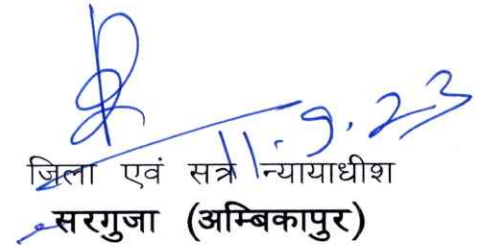 11.9.23
जिला एवं सत्र न्यायाधीश
सरगुजा (अम्बिकापुर)